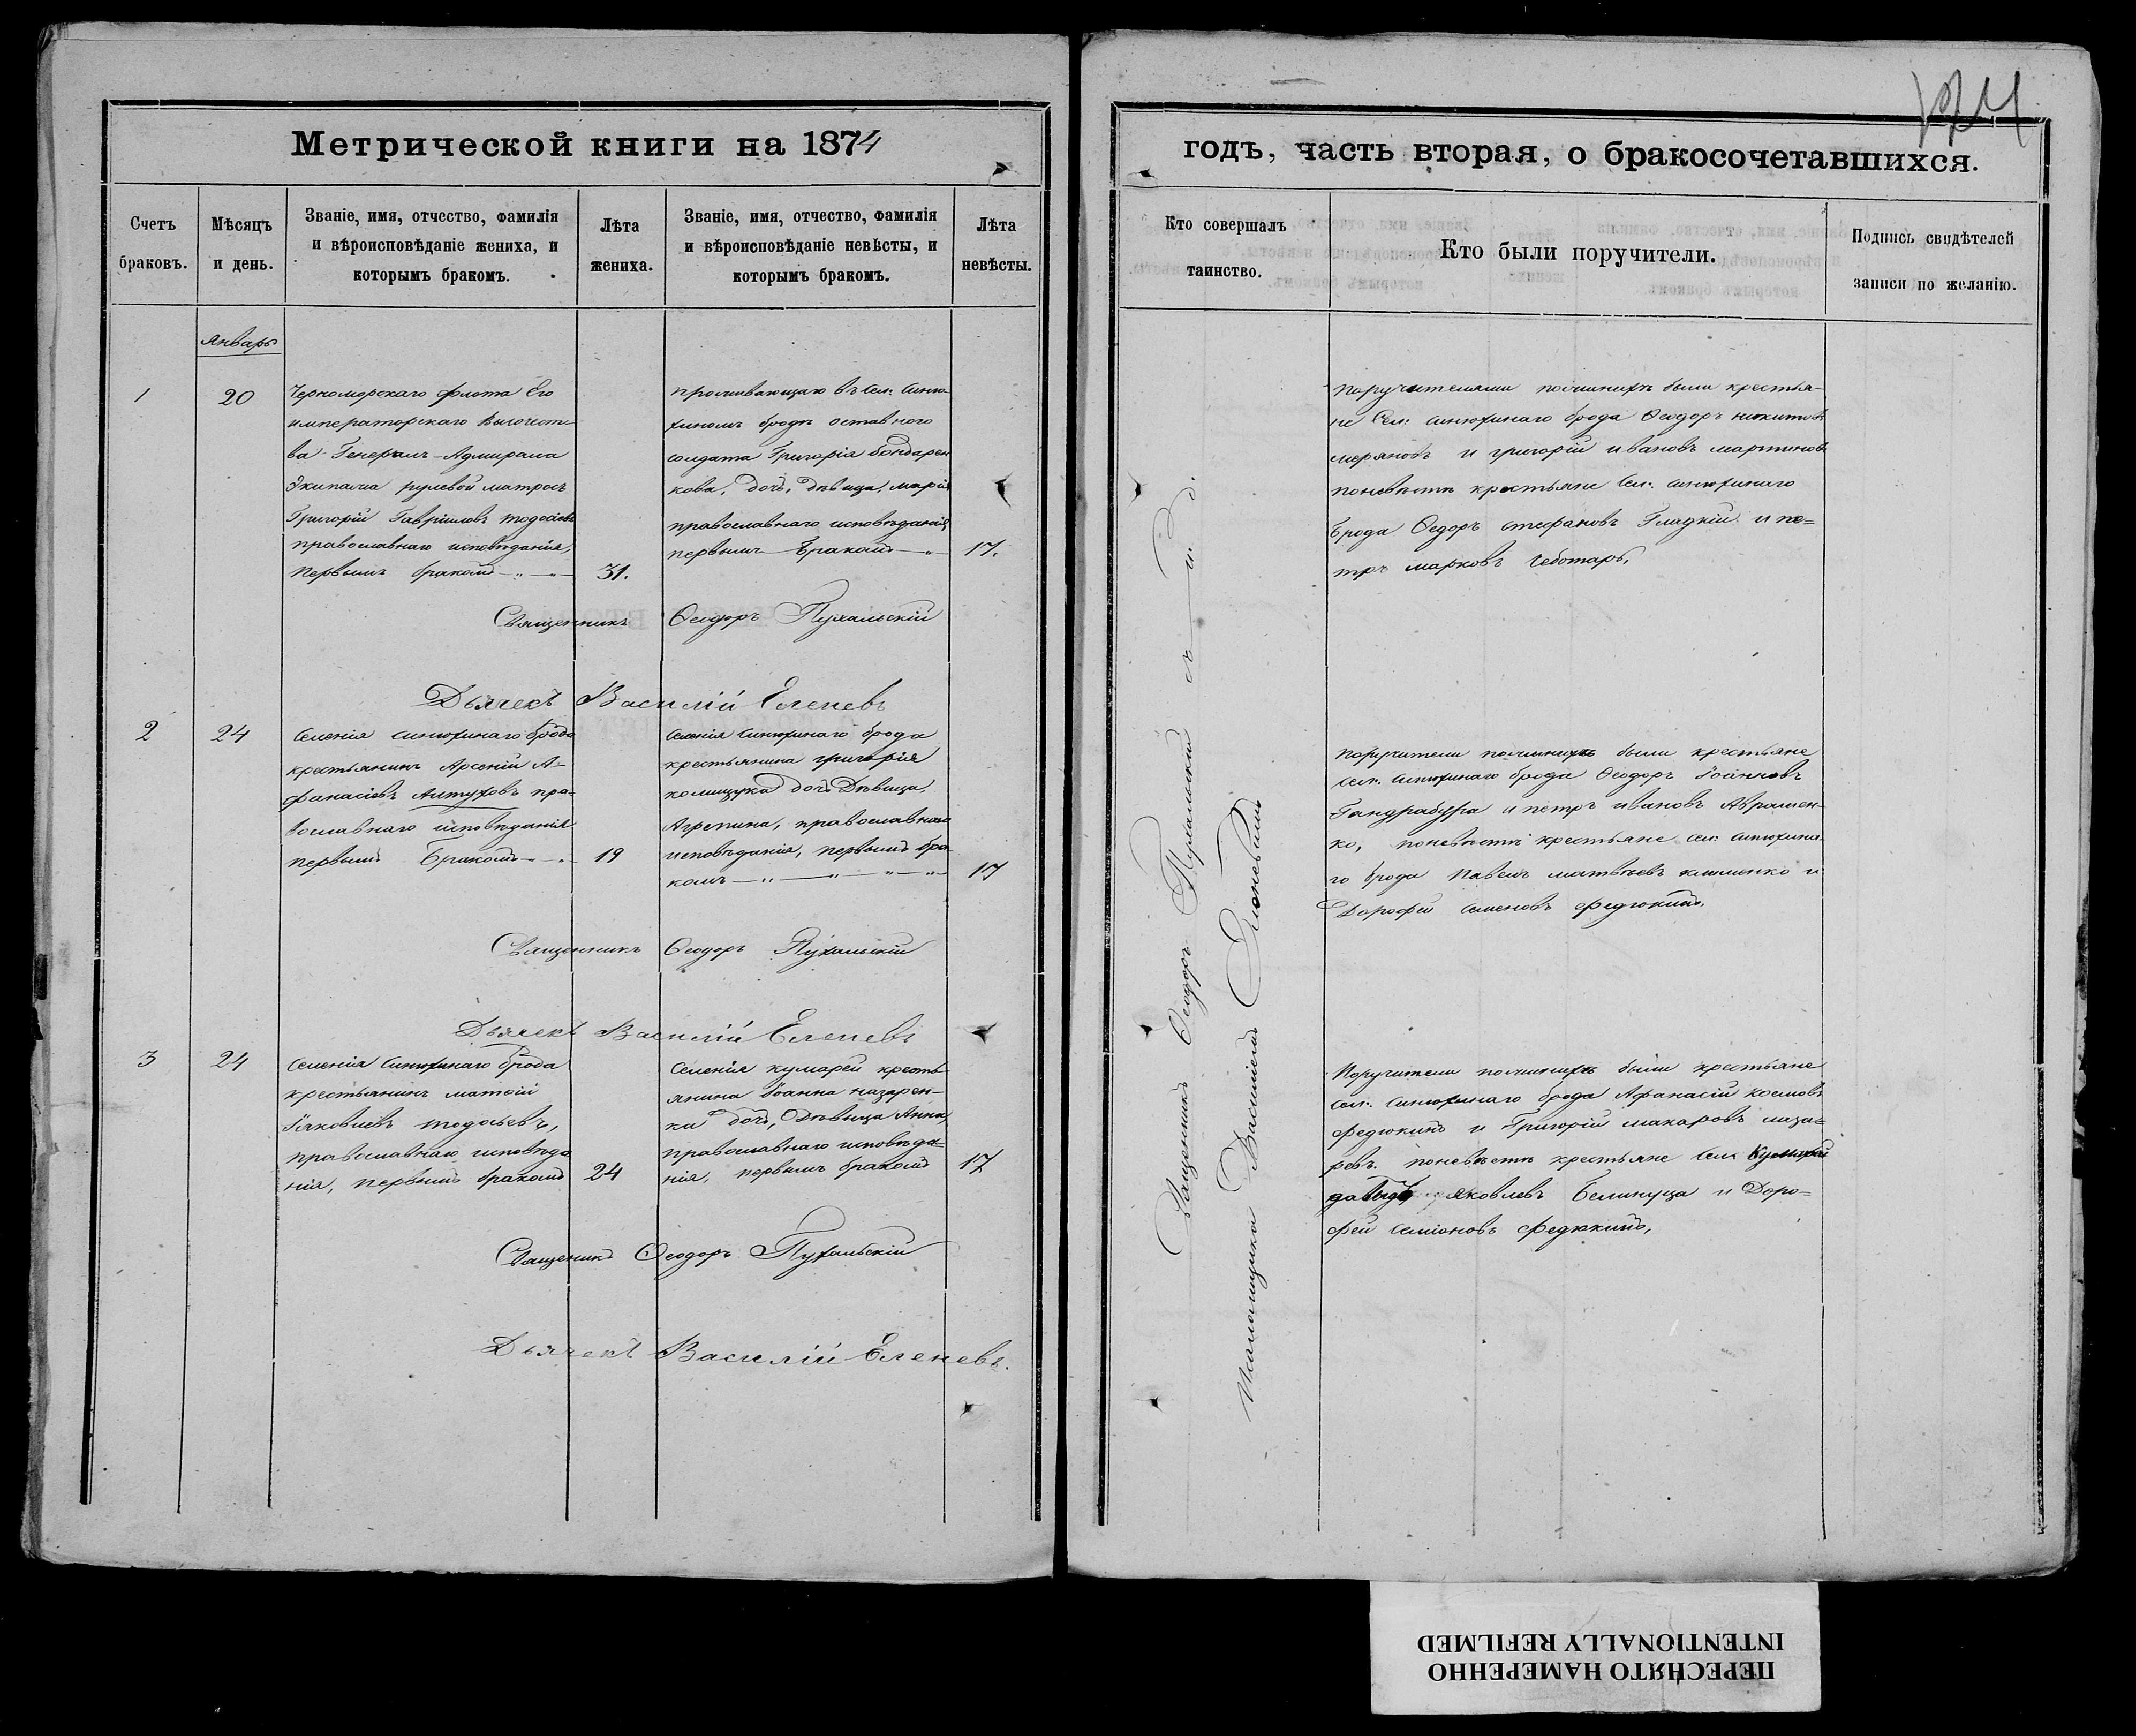 Метрической книги на 1874
Счетъ браковъ.
Мѣсяцъ и день.
Званіе, имя, отчество, фамилія и вѣроисповѣданіе жениха, и которымъ бракомъ.
Лѣта жениха.
Званіе, имя, отчество, фамилія и вѣроисповѣданіе невѣсты, и которымъ бракомъ.
Лѣта невѣсты.
Январь
1
20
Черноморскаго флота Его
императорскаго Высочест-
ва Генералъ-Адмирала
Экипажа рулевой матросъ
Григорій Гавріиловъ Тодосіевъ
православнаго исповѣданія,
первымъ бракомъ
31.
проживающаго въ сел: Синю-
хиномъ бродѣ оставного
солдата Григорія Бондарен
кова, дочь, дѣвица, Марія
православнаго исповѣданія
первымъ бракомъ
17.
Священникъ Ѳеодоръ Пухальскій
Дьячекъ Василій Еленевъ
2
24
Селенія Синюхинаго брода
крестьянинъ Арсеній А-
фанасіевъ Алтуховъ пра-
вославнаго исповѣданія
первымъ бракомъ
19
Селенія Синюхинаго брода
крестьянина Григорія
колищука дочь Дѣвица,
Агрепина, православнаго
исповѣданія, первымъ бра-
комъ
17
Священникъ Ѳеодоръ Пухальскій
Дьячекъ Василій Еленевъ
3
24
Селенія Синюхинаго брода
крестьянинъ матѳій
Іяковлевъ тодосьевъ,
православнаго исповѣда
нія, первымъ бракомъ
24
Селенія кумарей кресть
янина Іоанна назарен-
ка дочь, Дѣвица Анна,
православнаго исповѣда-
нія, первымъ бракомъ
17
Священикъ Ѳеодоръ Пухальскій
Дьячекъ Василій Еленевъ.
годъ, часть вторая, о бракосочетавшихся.
Кто совершалъ таинство.
Кто были поручители.
Подпись свидѣтелей записи по желанію.
Священникъ Ѳеодоръ Пухальскій съ
Василіемъ Еленевымъ
Поручителями пожених были крестья-
не Сел: Синюхинаго брода Ѳеодоръ никитовъ
и григорій ивановъ мартиновъ
поневѣстѣ крестьяне Сел: Синюхинаго
брода Ѳедоръ стефановъ Гладкій и пе=
тръ марковъ Чеботарь,
поручители пожених были крестьяне
сел: Синюхинаго брода Ѳеодоръ Іоанновъ
Гандрабура и петръ ивановъ Авраmен-
ко, поневѣстѣ крестьяне сел: Синюхина-
го брода Павелъ матвѣевъ клименко и
Дорофей семеновъ Федюкинъ,
Поручители пожених были крестьяне
сел: Синюхинаго брода Афанасій космовъ
Федюкинъ и Григорій макаровъ лаза=
ревъ. поневѣстѣ крестьяне Сел: Кумарей
давыдъ яковлевъ Белинуца и Доро=
фей семіоновъ Федюкинъ,
ПЕРЕСНЯТО НАМЕРЕННО
INTENTIONALLY REFILMED